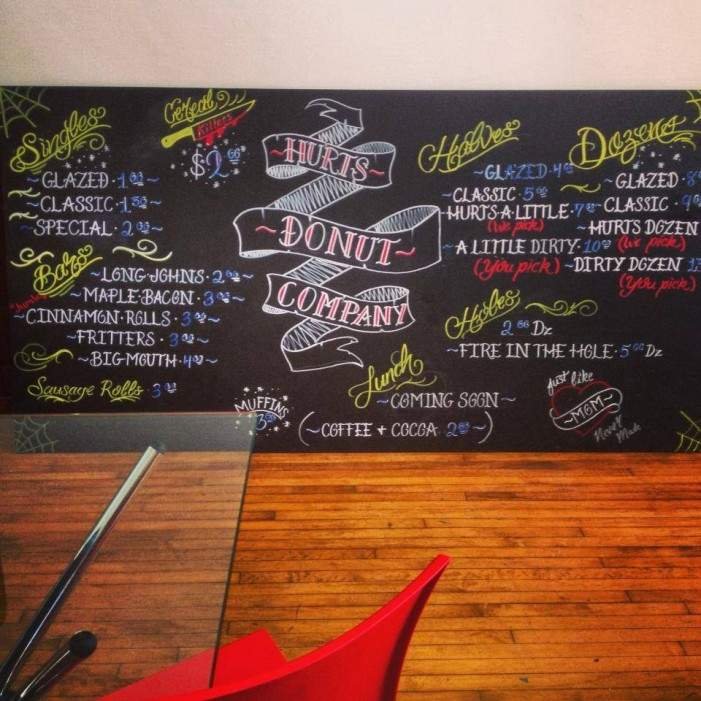 Singles
~GLAZED·1.00~
~CLASSIC·1.50~
~SPECIAL·2.00~
Cereal
Killers
$2.00
Bars
~LONG·JOHNS·2.00~
~MAPLE·BACON·3.00~
~CINNAMON·ROLLS·3.00~
~FRITTERS·3.00~
~BIG·MOUTH·4.00~
Sausage Rolls 3.00
~HURTS~
~DONUT~
COMPANY
MUFFINS
3.50
Lunch
~COMING SOON~
(~COFFEE + COCOA 2.00~)
Halves
~GLAZED·4
~CLASSIC·5
HURTS·A·LITTLE·7
(We pick)
~A LITTLE DIRTY·10
(You pick)
Dozens
~GLAZED·8
CLASSIC·9
~HURTS DOZEN
(We pick)
~DIRTY DOZEN
(You pick)
Holes
2.00 Dz
~FIRE IN THE HOLE·5.00 Dz
just like
~MOM~
Never Made